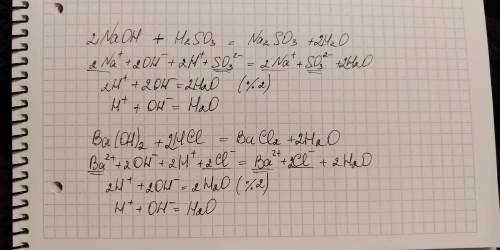 2NaOH + H₂SO₃ = Na₂SO₃ + 2H₂O
2Na⁺ + 2OH⁻ + 2H⁺ + SO₃²⁻ = 2Na⁺ + SO₃²⁻ + 2H₂O
2H⁺ + 2OH⁻ = 2H₂O (%2)
H⁺ + OH⁻ = H₂O
Ba(OH)₂ + 2HCl = BaCl₂ + 2H₂O
Ba²⁺ + 2OH⁻ + 2H⁺ + 2Cl⁻ = Ba²⁺ + 2Cl⁻ + 2H₂O
2H⁺ + 2OH⁻ = 2H₂O (%2)
H⁺ + OH⁻ = H₂O